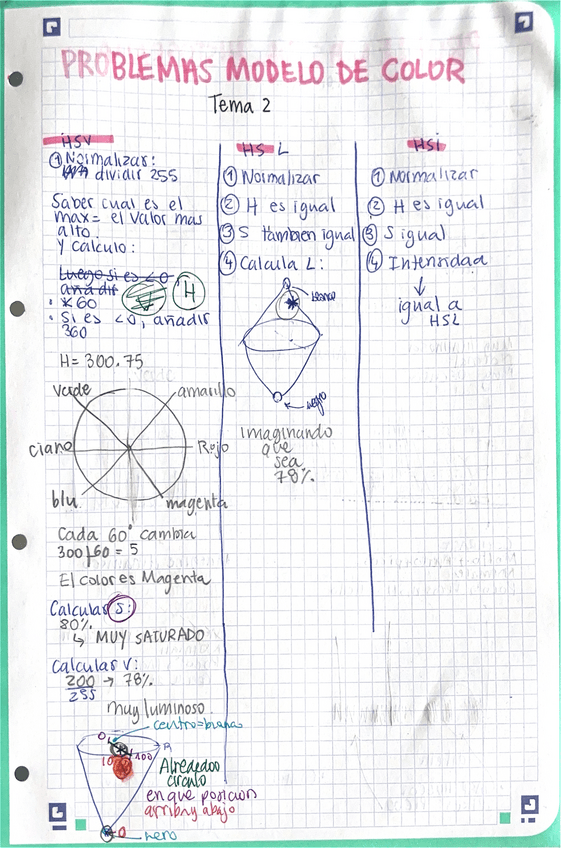 PROBLEMAS MODELO DE COLOR
Tema 2
HSV
① Normalizar:
dividir 255
Saber cual es el
max= el valor mas
alto.
y calculo:
Luego si es <0,
añadir
· * 60
H
· Si es <0, añadir
360
H= 300.75
verde
amarillo
ciano
Rojo
blu
magenta
Cada 60° cambia
300/60 = 5
El color es Magenta
Calcular S:
80%
↳ MUY SATURADO
Calcular V:
200/255 → 78%
muy luminoso
centro=blanco
0
100
Alrededor
circulo
en que posicion
arriba y abajo
0
nero
HSL
① Normalizar
② H es igual
③ S tambien igual
④ Calcula L:
blanco
negro
imaginando
que
sea
78%.
HSI
① Normalizar
② H es igual
③ S igual
④ Intensidad
↓
igual a
HSL